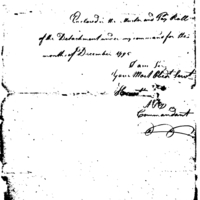 Enclosed is the Muster and Pay Rolls
of the Detachment under my command for the
month of December 1795
I am Sir
Your Most Obedt Servt
Commandant